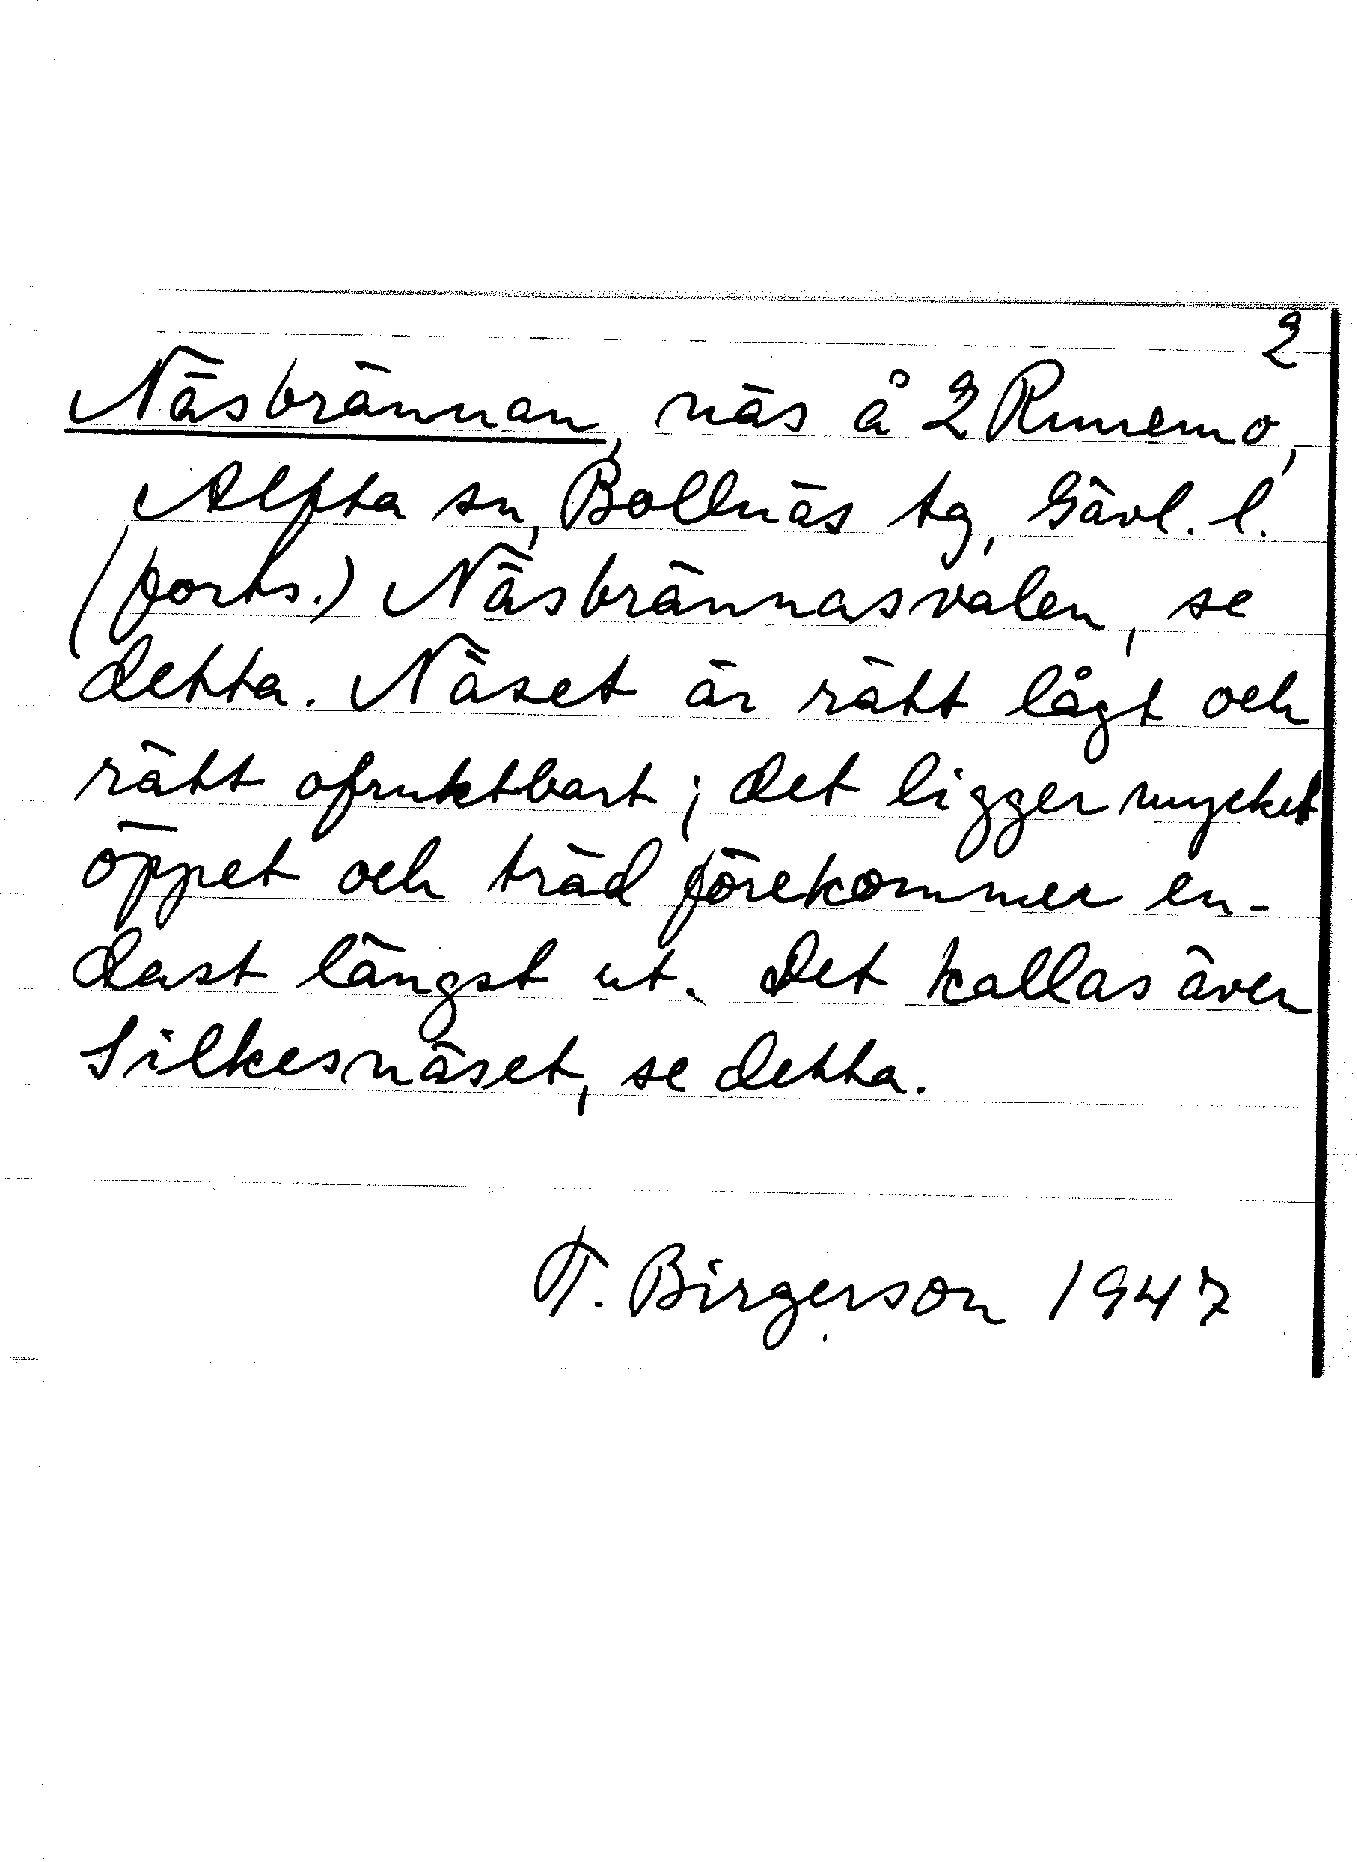 2
Näsbrännan, näs å 2 Runemo,
Alfta sn, Bollnäs tg, Gävl. l.
(forts.) Näsbrännasvalen, se
detta. Näset är rätt lågt och
rätt ofruktbart; det ligger mycket
öppet och träd förekommer en-
dast längst ut. Det kallas även
Silkesnäset, se detta.
T. Birgerson 1947